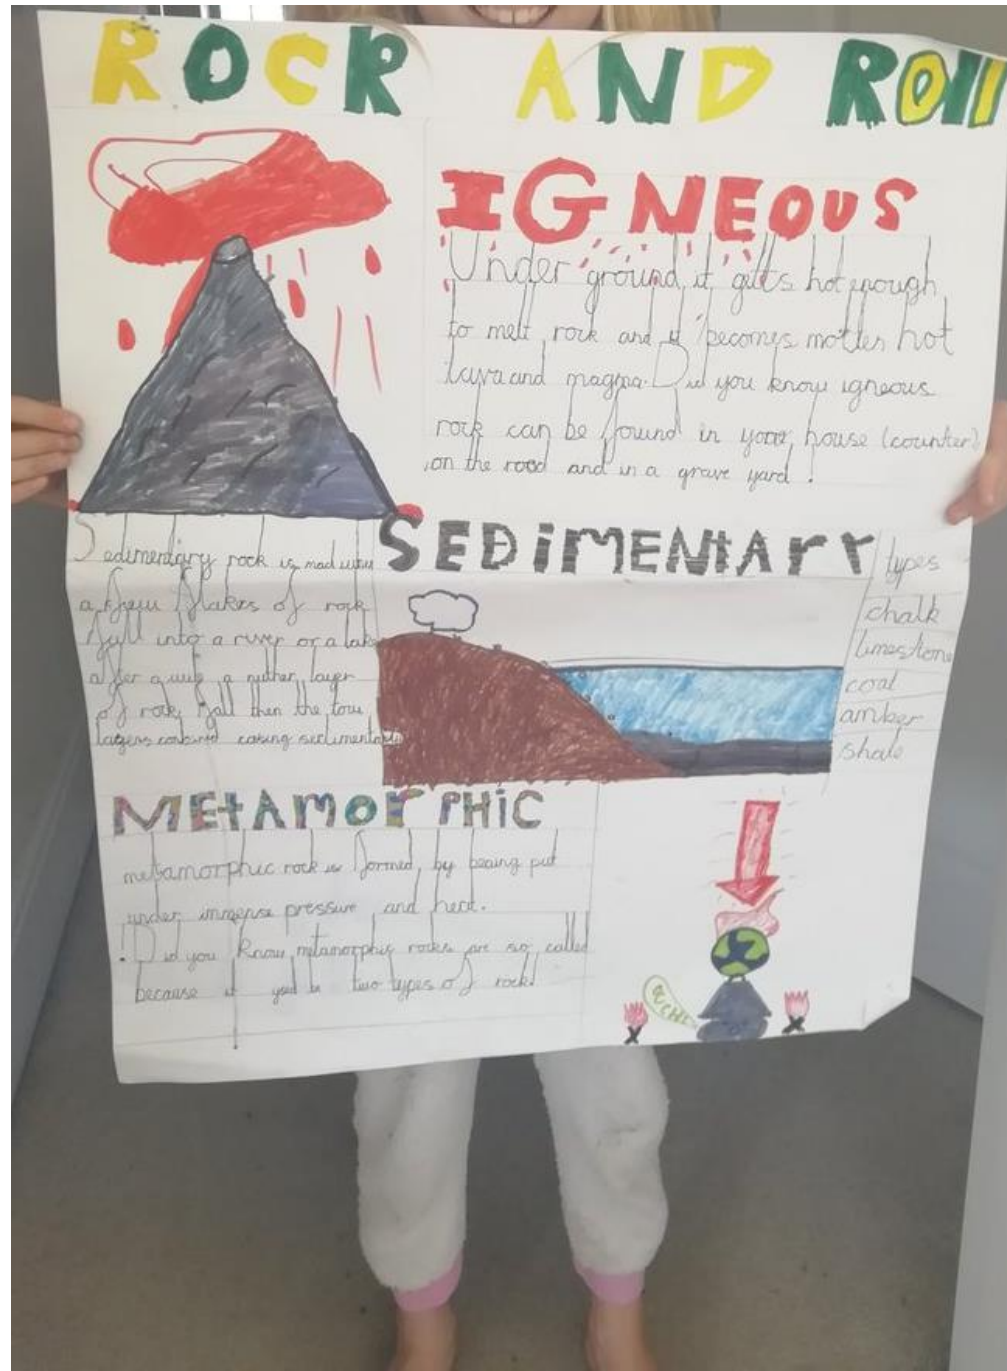 ROCK AND ROll
IGNEOUS
Under ground it gets hot enough
to melt rock and it becomes molten hot
lava and magma. Did you know igneous
rock can be found in your house (counter)
on the road and in a grave yard !
SEDiMENtArY
Sedimentary rock is mad when
a few flakes of rock
fall into a river or a lake
after a a nuther layer
of rock fall then the tow
layers conbined casing sedimentary
types
chalk
limestone
coal
amber
shale
MEtAMOrPHiC
metamorphic rock is formed by beaing put
under immense pressure and heat.
! Did you know metamorphic rocks are so called
because it two types of rock!
OUCH!